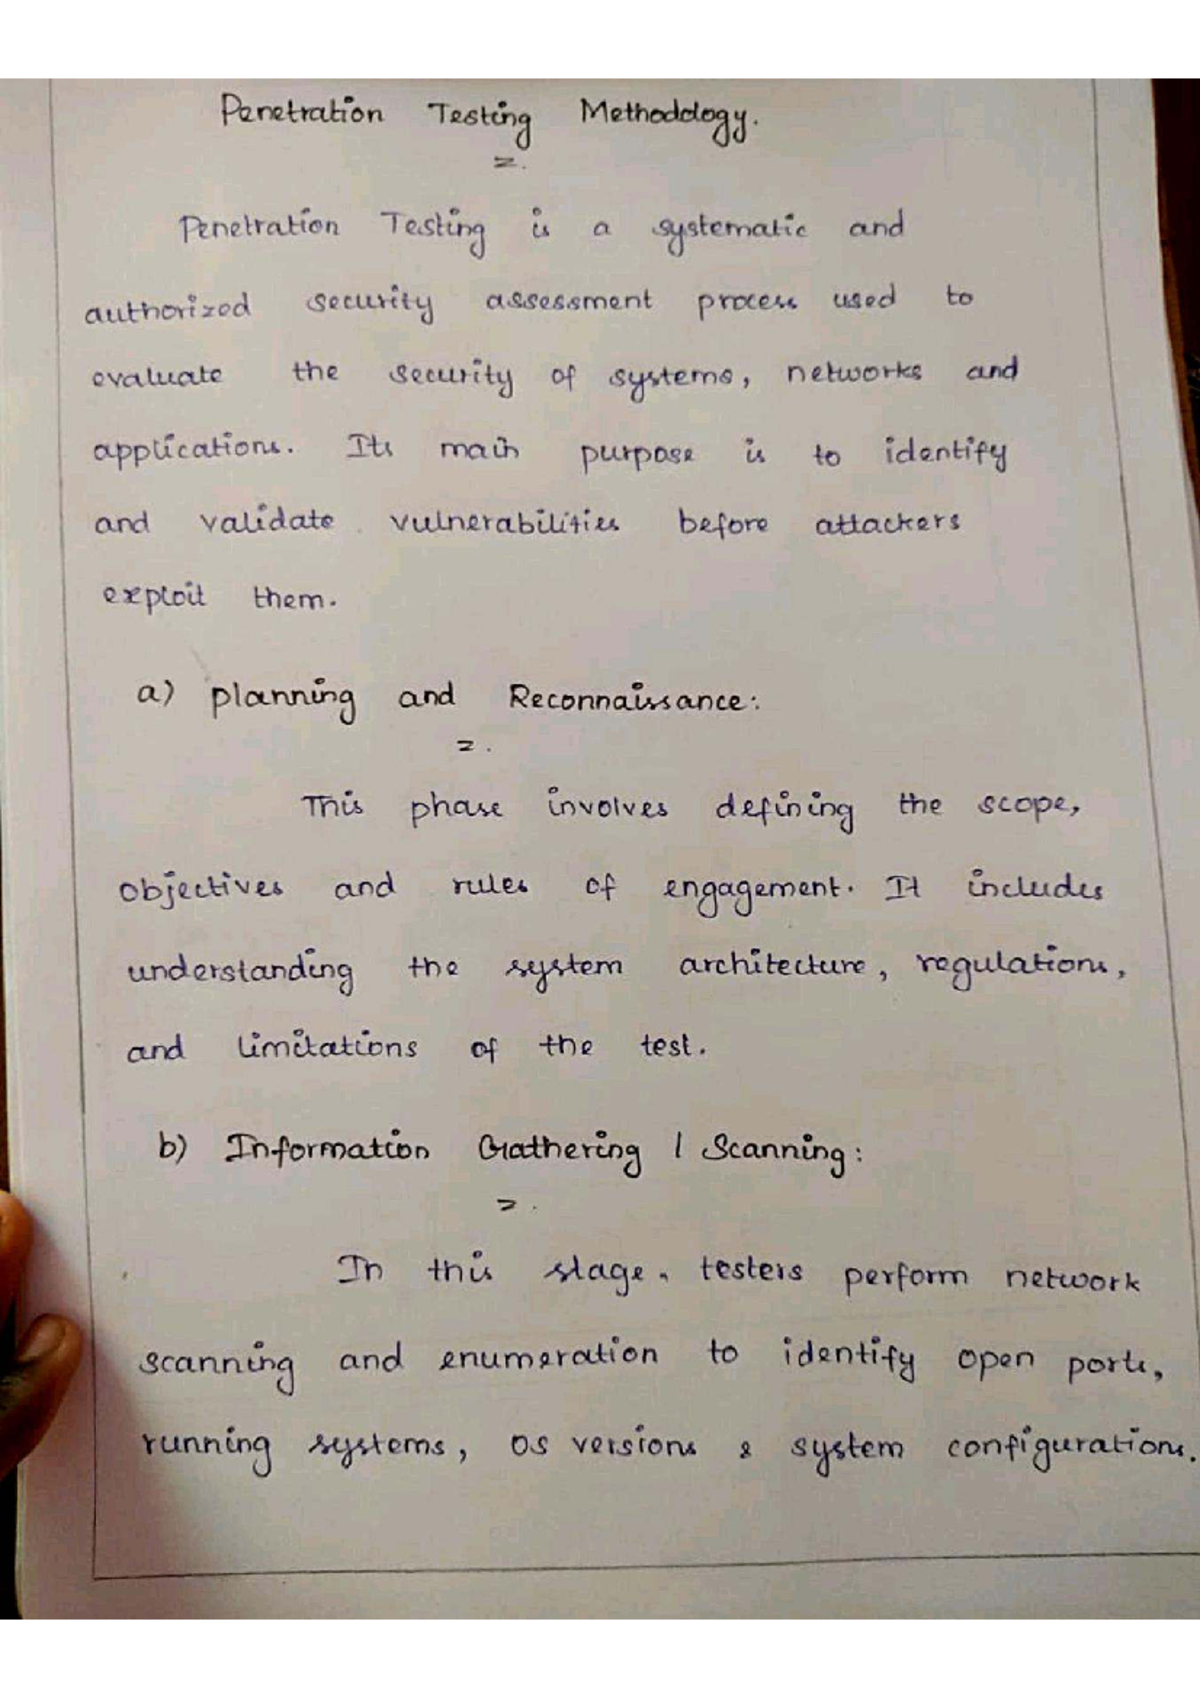 Penetration Testing Methodology.
Penetration Testing is a systematic and
authorized security assessment process used to
evaluate the security of systems, networks and
applications. Its main purpose is to identify
and validate vulnerabilities before attackers
exploit them.
a) Planning and Reconnaissance:
This phase involves defining the scope,
objectives and rules of engagement. It includes
understanding the system architecture, regulations,
and limitations of the test.
b) Information Gathering | Scanning:
In this stage, testers perform network
scanning and enumeration to identify open ports,
running systems, OS versions & system configurations.